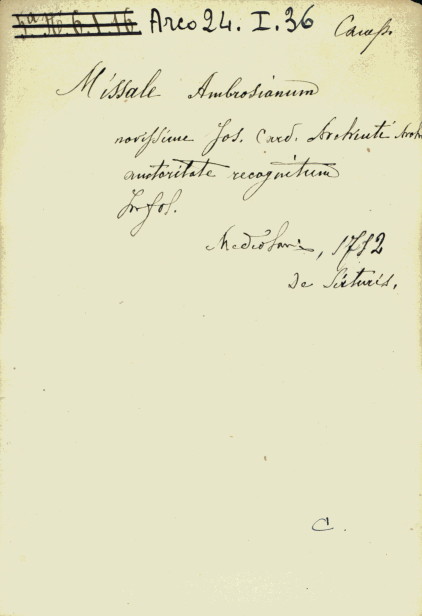 Arco 24. I. 36
Missale Ambrosianum
novissime Jos. Card. Archinti
auctoritate recognitum
In fol.
Mediolani, 1712
De Sixturis.
C.